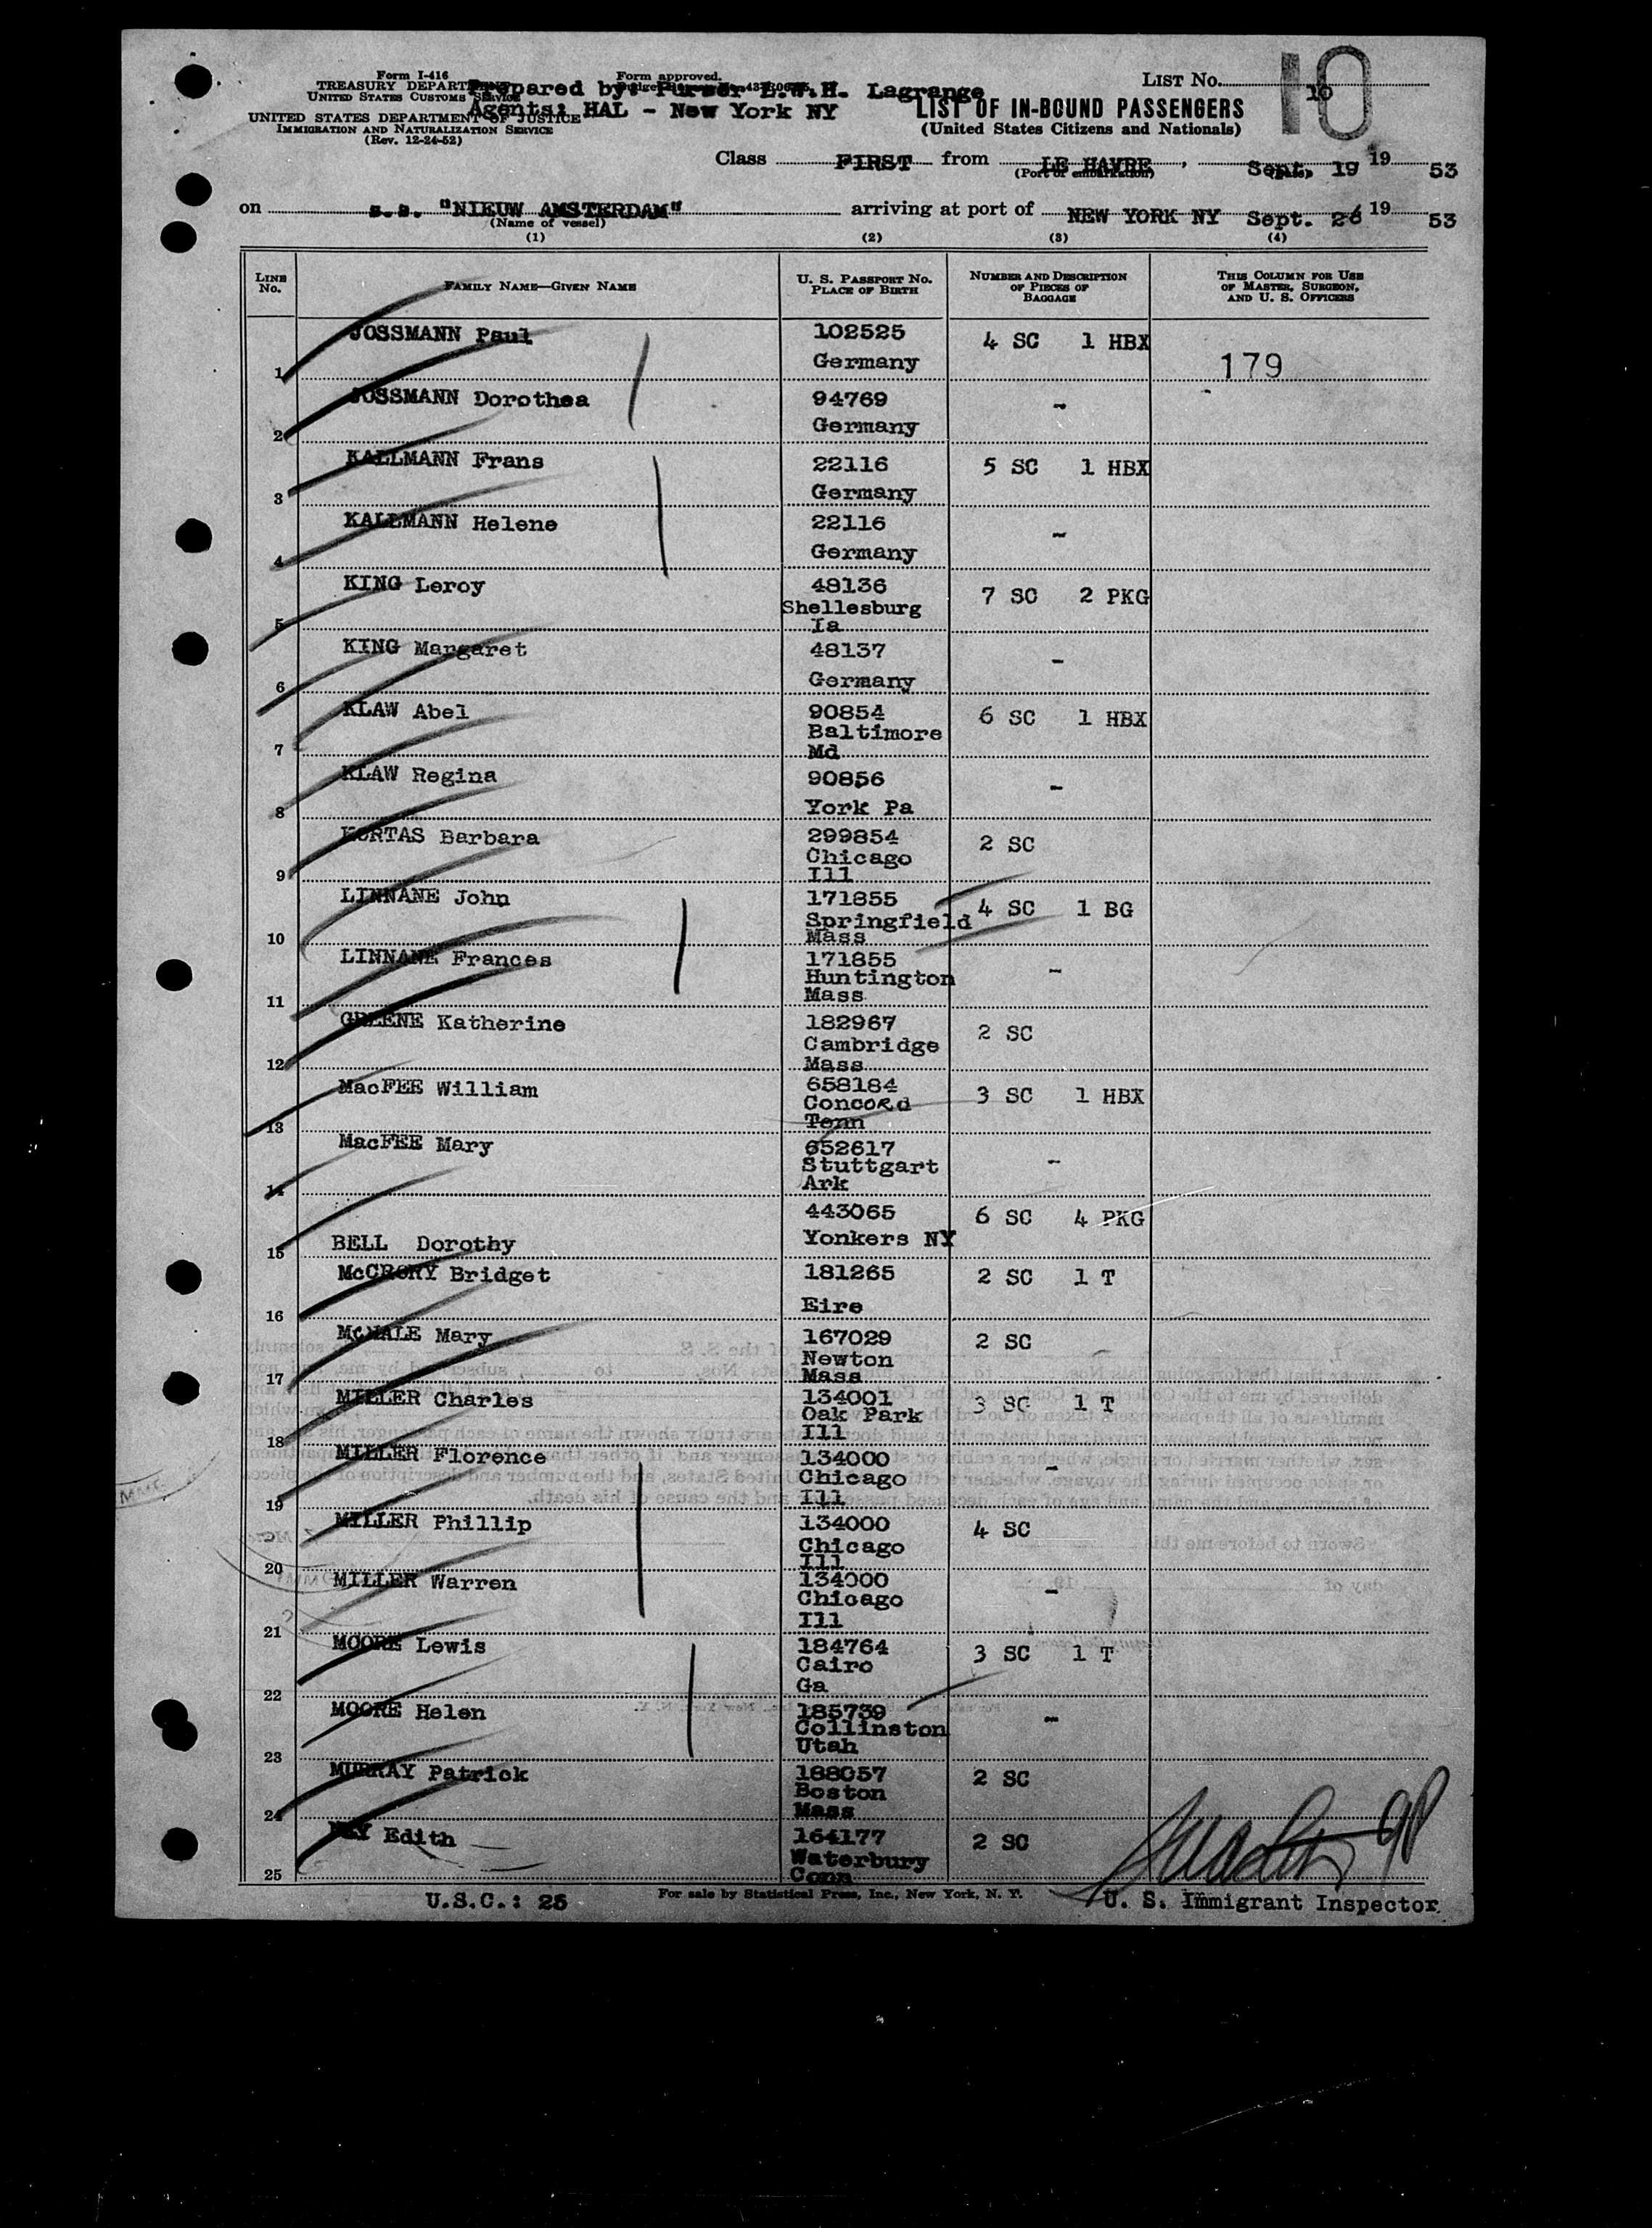 Form I-416
TREASURY DEPARTMENT
UNITED STATES CUSTOMS SERVICE
UNITED STATES DEPARTMENT OF JUSTICE
IMMIGRATION AND NATURALIZATION SERVICE
(Rev. 12-24-52)
Form approved.
Prepared by: Purser L.W.H. Lagrange
Agents: HAL - New York NY
LIST No. 10
10
LIST OF IN-BOUND PASSENGERS
(United States Citizens and Nationals)
Class FIRST from LE HAVRE, Sept. 19 19 53
(Port of embarkation) (Date)
on s.s. "NIEUW AMSTERDAM" arriving at port of NEW YORK NY Sept. 26 19 53
(Name of vessel)
(1) (2) (3) (4)
LINE No. FAMILY NAME—GIVEN NAME U. S. PASSPORT No. PLACE OF BIRTH NUMBER AND DESCRIPTION OF PIECES OF BAGGAGE THIS COLUMN FOR USE OF MASTER, SURGEON, AND U. S. OFFICERS
1 JOSSMANN Paul 102525 Germany 4 SC 1 HBX 179
2 JOSSMANN Dorothea 94769 Germany -
3 KALLMANN Frans 22116 Germany 5 SC 1 HBX
4 KALLMANN Helene 22116 Germany -
5 KING Leroy 48136 Shellesburg Ia 7 SC 2 PKG
6 KING Margaret 48137 Germany -
7 KLAW Abel 90854 Baltimore Md 6 SC 1 HBX
8 KLAW Regina 90856 York Pa -
9 KORTAS Barbara 299854 Chicago Ill 2 SC
10 LINNANE John 171855 Springfield Mass 4 SC 1 BG
11 LINNANE Frances 171855 Huntington Mass -
12 GREENE Katherine 182967 Cambridge Mass 2 SC
13 MacFEE William 658184 Concord Tenn 3 SC 1 HBX
14 MacFEE Mary 652617 Stuttgart Ark -
15 BELL Dorothy 443065 Yonkers NY 6 SC 4 PKG
16 McCRORY Bridget 181265 Eire 2 SC 1 T
17 McHALE Mary 167029 Newton Mass 2 SC
18 MILLER Charles 134001 Oak Park Ill 3 SC 1 T
19 MILLER Florence 134000 Chicago Ill -
20 MILLER Phillip 134000 Chicago Ill 4 SC
21 MILLER Warren 134000 Chicago Ill -
22 MOORE Lewis 184764 Cairo Ga 3 SC 1 T
23 MOORE Helen 185739 Collinston Utah -
24 MURRAY Patrick 188057 Boston Mass 2 SC
25 Edith 164177 Waterbury Conn 2 SC
U.S.C.: 25
For sale by Statistical Press, Inc., New York, N. Y.
U. S. Immigrant Inspector